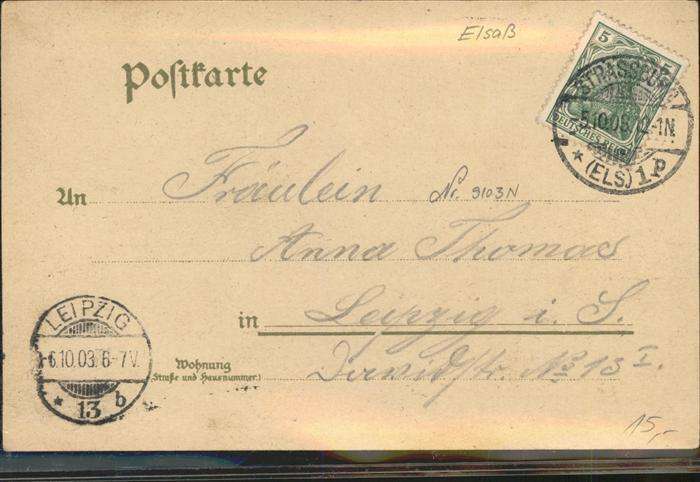 Elsaß
Postkarte
5 5
DEUTSCHES REICH
STRASSBURG
5.10.03. 12-1N
* (ELS) 1.b
An Fräulein
Nr. 9103N
Anna Thomas
in Leipzig i. S.
Wohnung
(Straße und Hausnummer)
Davidstr. No 13 I.
LEIPZIG
6.10.03. 6-7V.
* 13 b
15,-